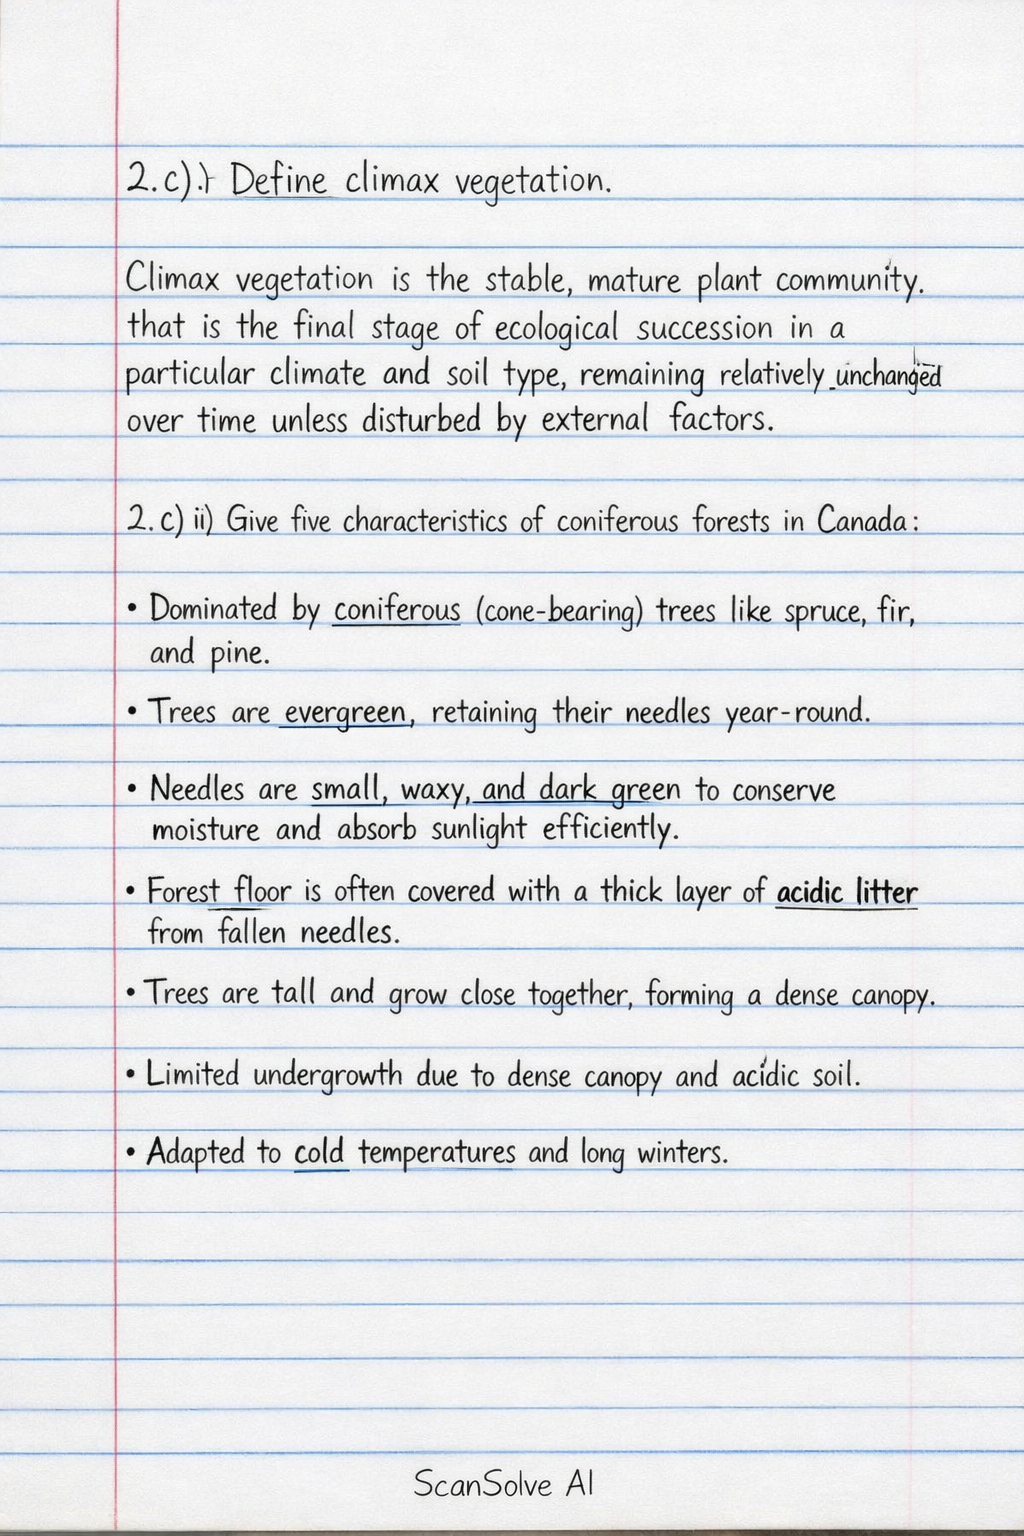 2.c).} Define climax vegetation.
Climax vegetation is the stable, mature plant community.
that is the final stage of ecological succession in a
particular climate and soil type, remaining relatively unchanged
over time unless disturbed by external factors.
2.c) ii) Give five characteristics of coniferous forests in Canada:
• Dominated by coniferous (cone-bearing) trees like spruce, fir,
and pine.
• Trees are evergreen, retaining their needles year-round.
• Needles are small, waxy, and dark green to conserve
moisture and absorb sunlight efficiently.
• Forest floor is often covered with a thick layer of acidic litter
from fallen needles.
• Trees are tall and grow close together, forming a dense canopy.
• Limited undergrowth due to dense canopy and acidic soil.
• Adapted to cold temperatures and long winters.
ScanSolve AI